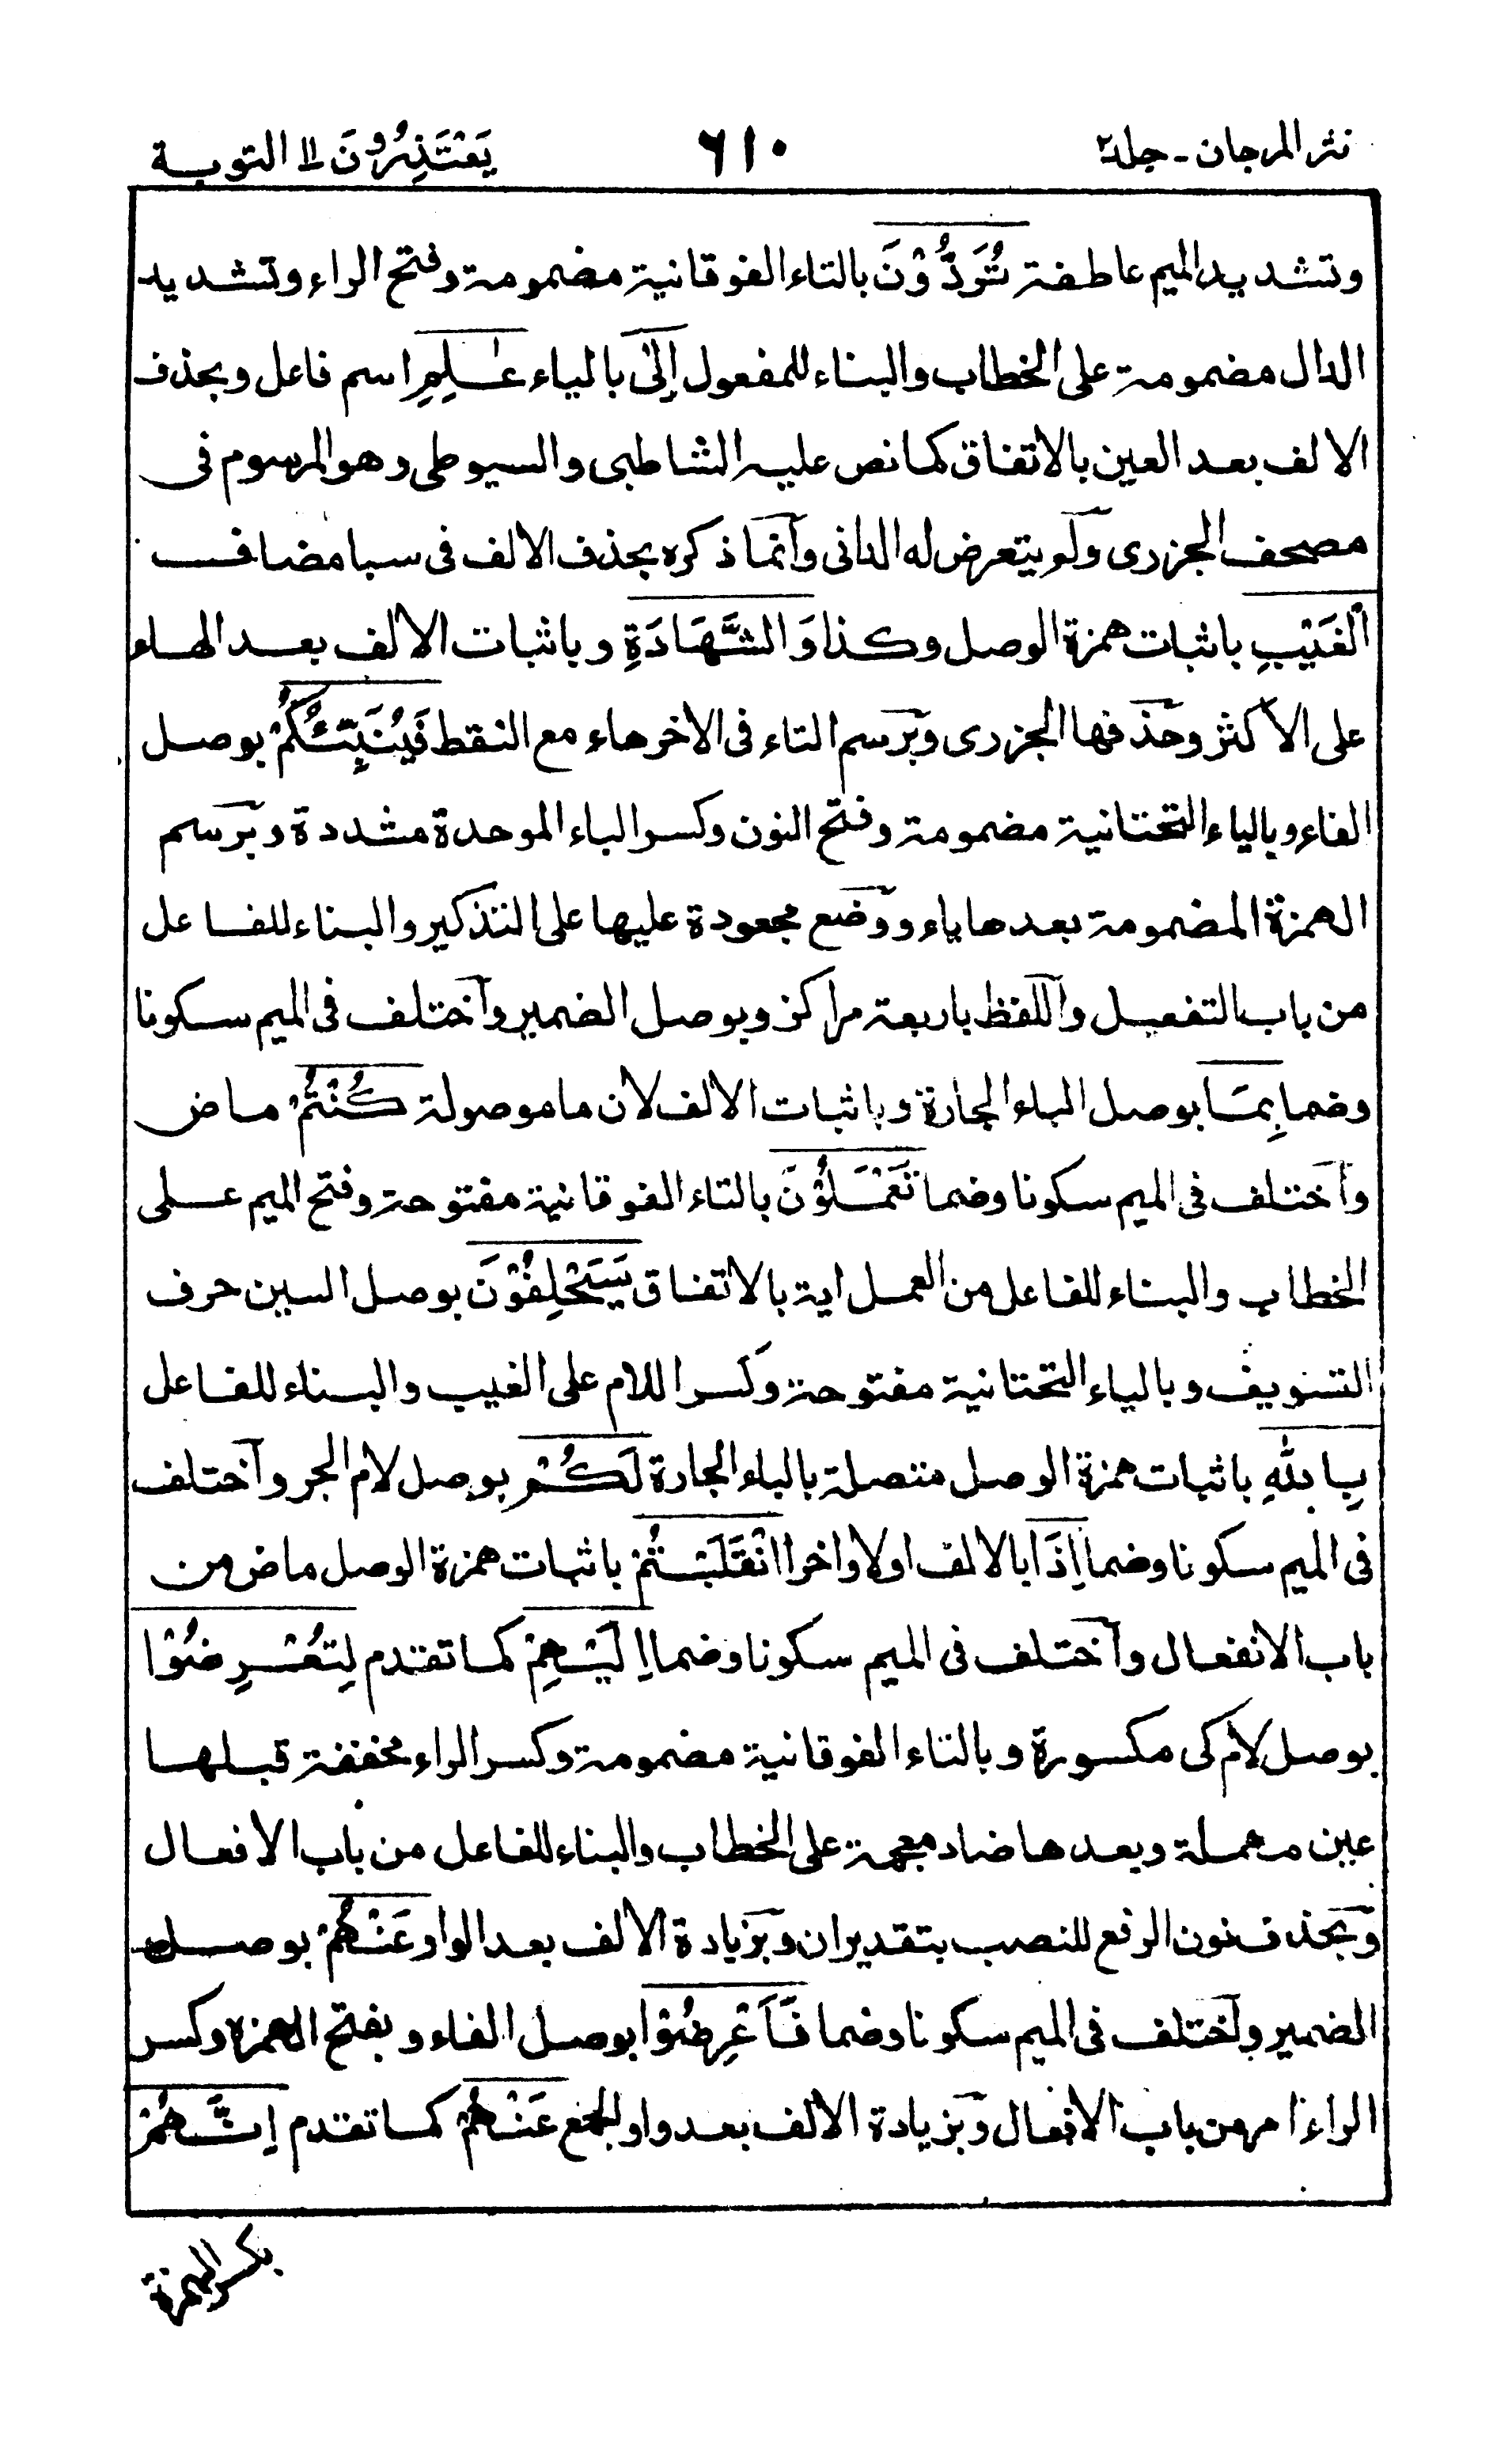 نثر المرجان - جلد ٢ ٦١٠ يَعْتَذِرُوْنَ ١١ التوبة
وتشديد الميم عاطفة تُرَدُّوْنَ بالتاء الفوقانية مضمومة وفتح الراء وتشديد
الدال مضمومة على الخطاب والبناء للمفعول إِلٰى بالياء عٰلِمِ اسم فاعل وبحذف
الالف بعد العين بالاتفاق كما نص عليه الشاطبى والسيوطى وهو المرسوم فى
مصحف الجزرى ولم يتعرض له الدانى وانما ذكره بحذف الالف فى سبا مضاف
الْغَيْبِ باثبات همزة الوصل وكذا وَالشَّهَادَةِ وباثبات الالف بعد الهاء
على الاكثر وحذفها الجزرى وبرسم التاء فى الاخر هاء مع النقط فَيُنَبِّئُكُمْ بوصل
الفاء وبالياء التحتانية مضمومة وفتح النون وكسر الباء الموحدة مشددة وبرسم
الهمزة المضمومة بعدها ياء ووضع مجعودة عليها على التذكير والبناء للفاعل
من باب التفعيل واللفظ باربعة مراكز وبوصل الضمير واختلف فى الميم سكونا
وضما بِمَا بوصل الباء الجارة وباثبات الالف لان ما موصولة كُنْتُمْ ماض
واختلف فى الميم سكونا وضما تَعْمَلُوْنَ بالتاء الفوقانية مفتوحة وفتح الميم على
الخطاب والبناء للفاعل من العمل اية بالاتفاق سَيَحْلِفُوْنَ بوصل السين حرف
التسويف وبالياء التحتانية مفتوحة وكسر اللام على الغيب والبناء للفاعل
بِاللّٰهِ باثبات همزة الوصل متصلة بالباء الجارة لَكُمْ بوصل لام الجر واختلف
فى الميم سكونا وضما اِذَا بالالف اولا واخرا انْقَلَبْتُمْ باثبات همزة الوصل ماض من
باب الانفعال واختلف فى الميم سكونا وضما اِلَيْهِمْ كما تقدم لِتُعْرِضُوْا
بوصل لام كى مكسورة وبالتاء الفوقانية مضمومة وكسر الراء مخففة قبلها
عين مهملة وبعدها ضاد معجمة على الخطاب والبناء للفاعل من باب الافعال
وبحذف نون الرفع للنصب بتقدير ان وبزيادة الالف بعد الواو عَنْهُمْ بوصل
الضمير واختلف فى الميم سكونا وضما فَاَعْرِضُوْا بوصل الفاء وبفتح الهمزة وكسر
الراء امر من باب الافعال وبزيادة الالف بعد واو الجمع عَنْهُمْ كما تقدم اِنَّهُمْ
بكسر الهمزة